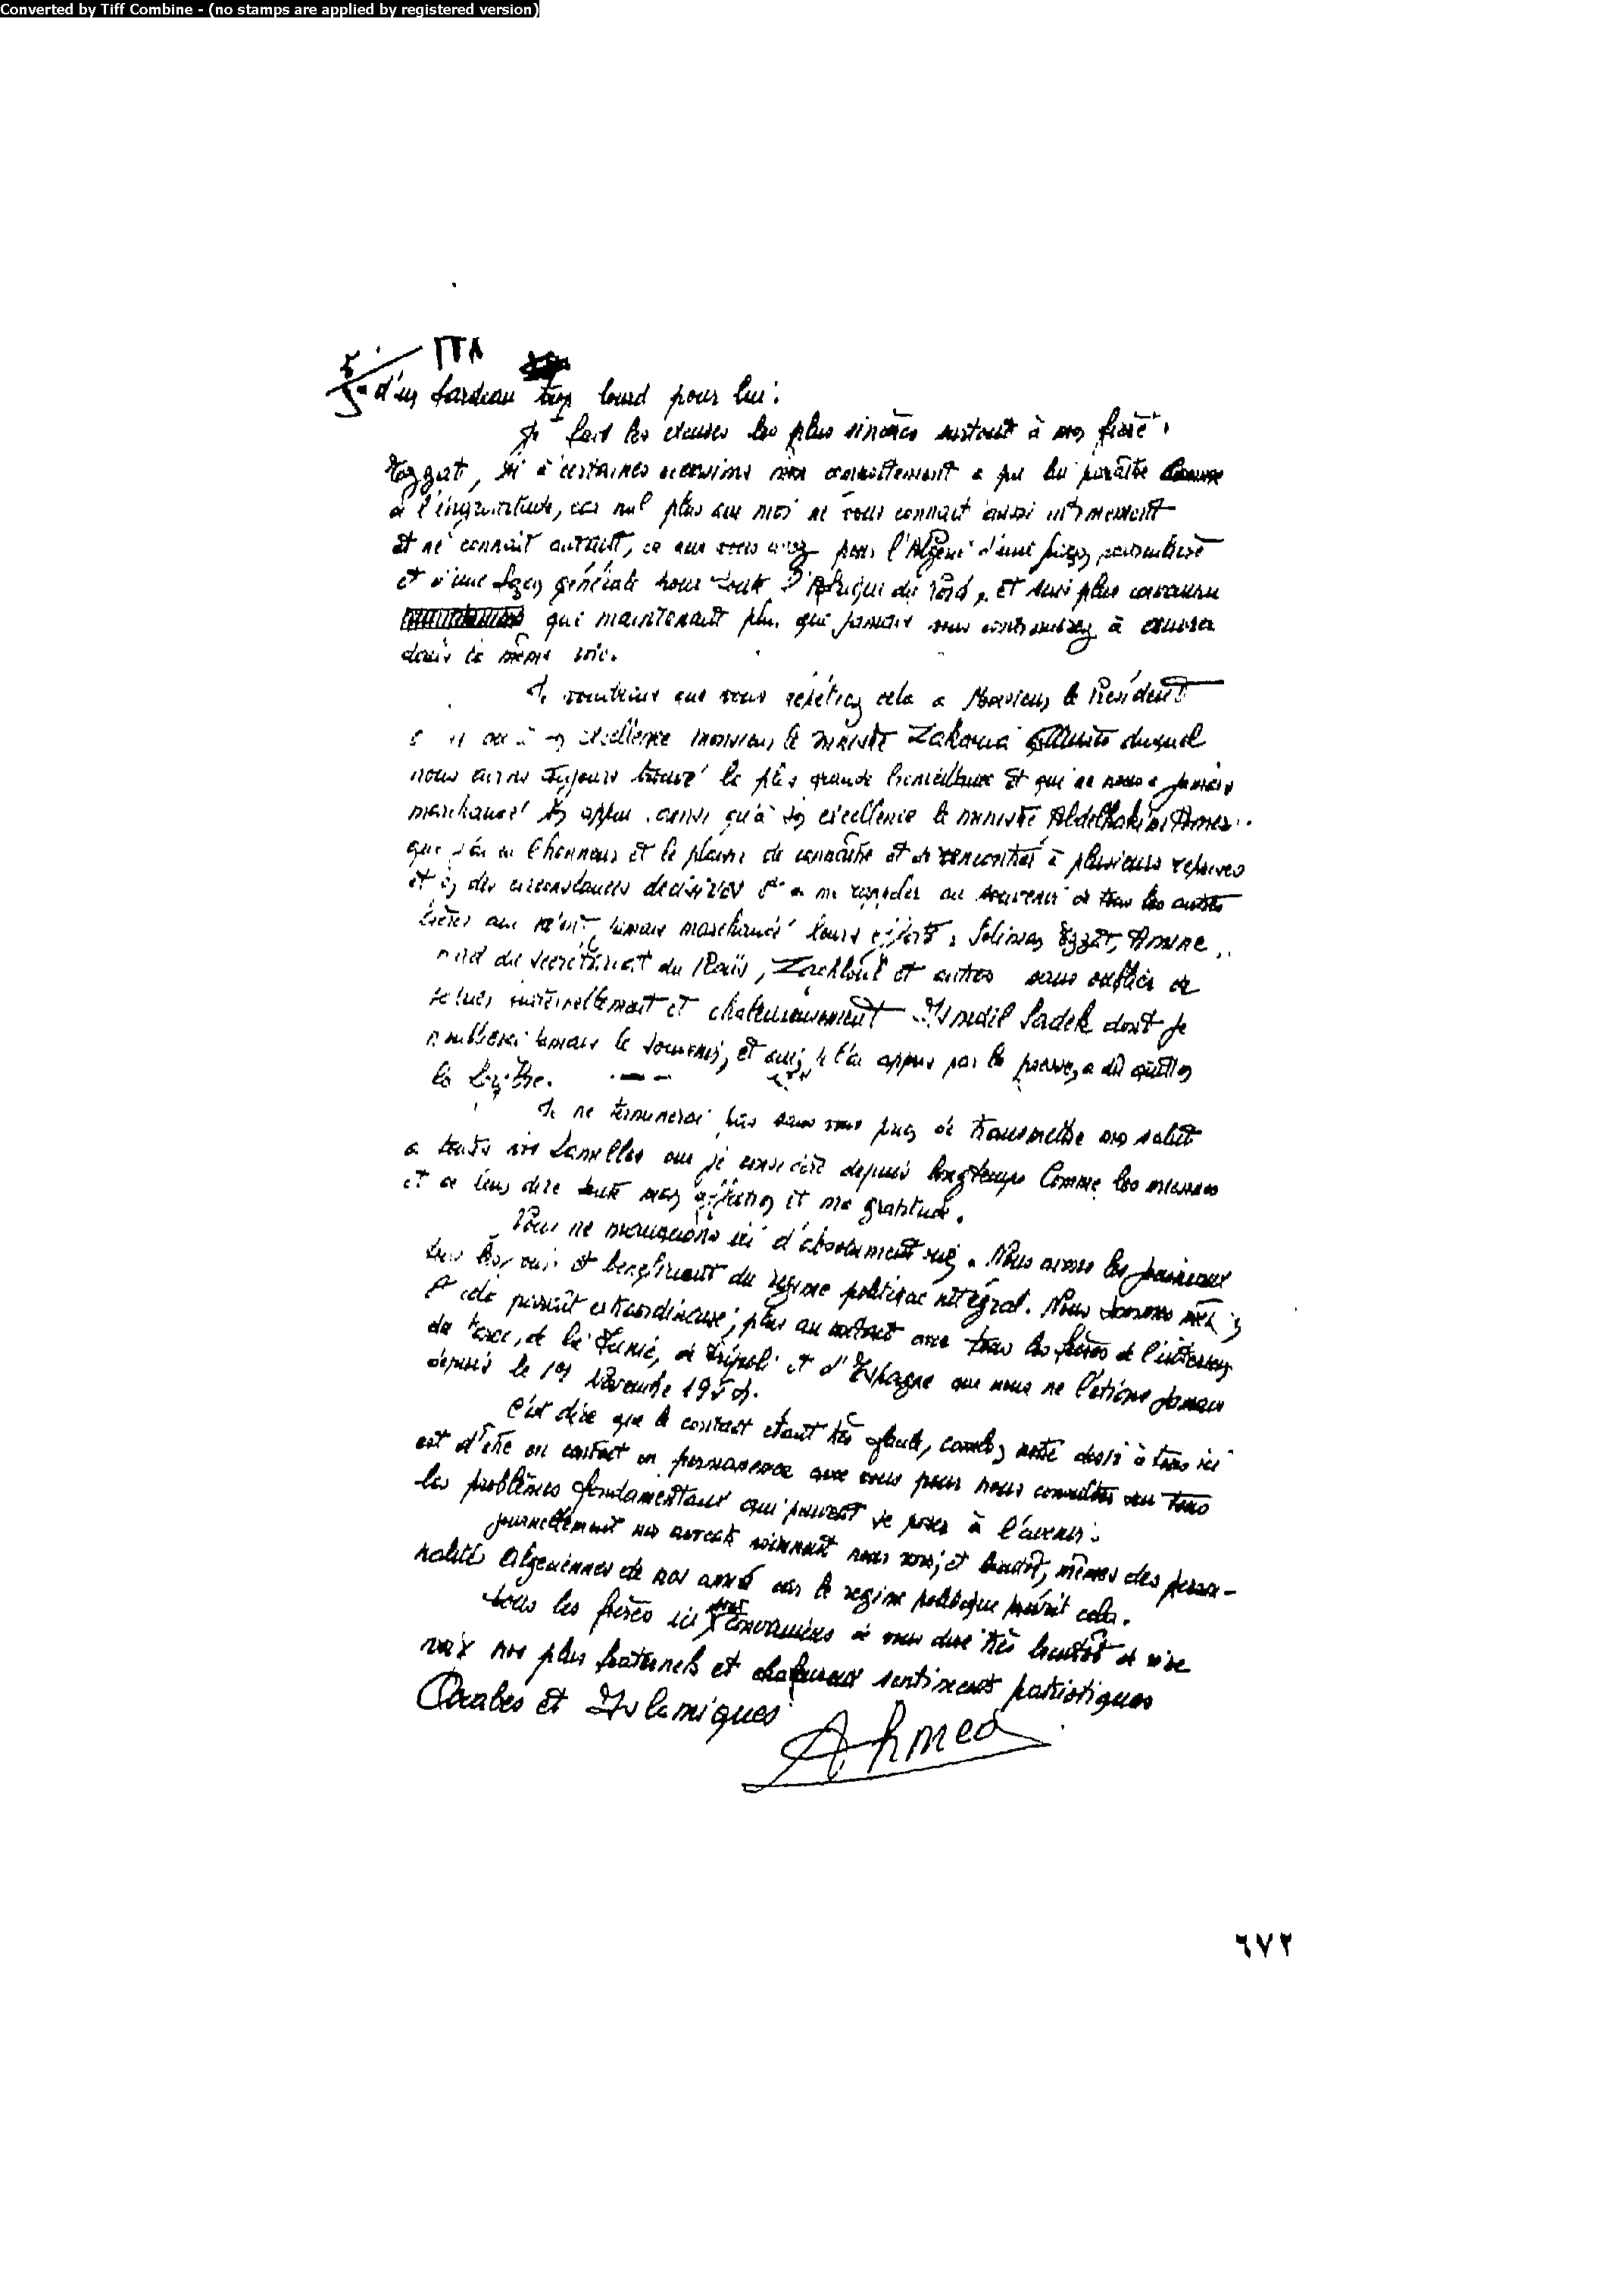 Converted by Tiff Combine - (no stamps are applied by registered version)
d'un fardeau trop lourd pour lui.
Je fait les excuses les plus sincères surtout à mon frère
Ezzat, si à certaines occasions mon comportement a pu lui paraître comme
à l'ingratitude, car nul plus que moi ne vous connait aussi intimement
et ne connait autant, ce que vous avez pour l'Algérie d'une façon particulière
et d'une façon générale pour toute l'Afrique du Nord, et suis plus convaincu
que maintenant plus que jamais vous continuerez à œuvrer
dans la même voie.
Je voudrais que vous répétiez cela a Monsieur le Président
excellence monsieur le ministre Zakaria duquel
nous avons toujours trouvé la plus grande bienveillance et qui ne nous a jamais
marchandé son appui ainsi qu'à son excellence le ministre Abdelhakim Amer
que j'ai eu l'honneur et le plaisir de connaître et de rencontrer à plusieurs reprises
et en des circonstances décisives et a me rappeler au souvenir de tous les autres
frères qui n'ont jamais marchandé leurs efforts, Soliman Ezzat, Amine
du secrétariat du Raïs, Zachloul et autres sans oublier de
saluer fraternellement et chaleureusement Ismaïl Sadek dont je
n'oublierai jamais le souvenir, et qui, je l'ai appris par la presse, a dû quitter
la Syrie.
Je ne terminerai pas sans vous prier de transmettre mon salut
a toutes vos familles que je considère depuis longtemps comme les miennes
et de leur dire toute mon affection et ma gratitude.
Nous ne manquons ici d'absolument rien. Nous avons les journaux
et bénéficiant du régime politique intégral. Nous sommes même
et cela paraît extraordinaire, plus au contact avec tous les frères de l'intérieur
du Maroc, de la Tunisie, de Tripoli et d'Espagne que nous ne l'étions jamais
depuis le 1er Novembre 1954.
C'est dire que le contact étant très facile, combien notre désir à tous ici
est d'être en contact en permanence avec vous pour nous consulter sur tous
les problèmes fondamentaux qui peuvent se poser à l'avenir.
Journellement nos avocats viennent nous voir, et bientôt, mêmes des person-
nalités Algériennes de nos amis car le régime politique prévoit cela.
Tous les frères ici pour vous dire très bientôt de vive
voix nos plus fraternels et chaleureux sentiments patriotiques
Arabes et Islamiques
Ahmed
٦٧٢